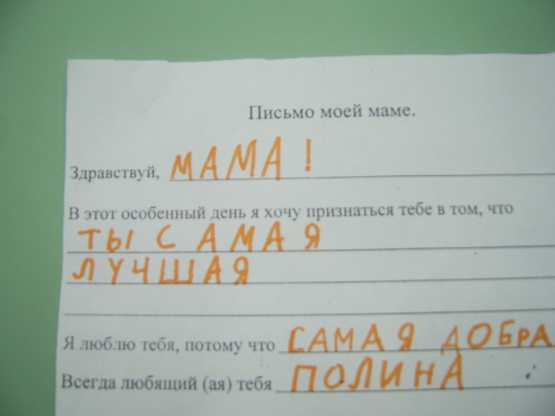 Письмо моей маме.
Здравствуй, МАМА!
В этот особенный день я хочу признаться тебе в том, что
ТЫ САМАЯ
ЛУЧШАЯ
Я люблю тебя, потому что САМАЯ ДОБРА
Всегда любящий (ая) тебя ПОЛИНА